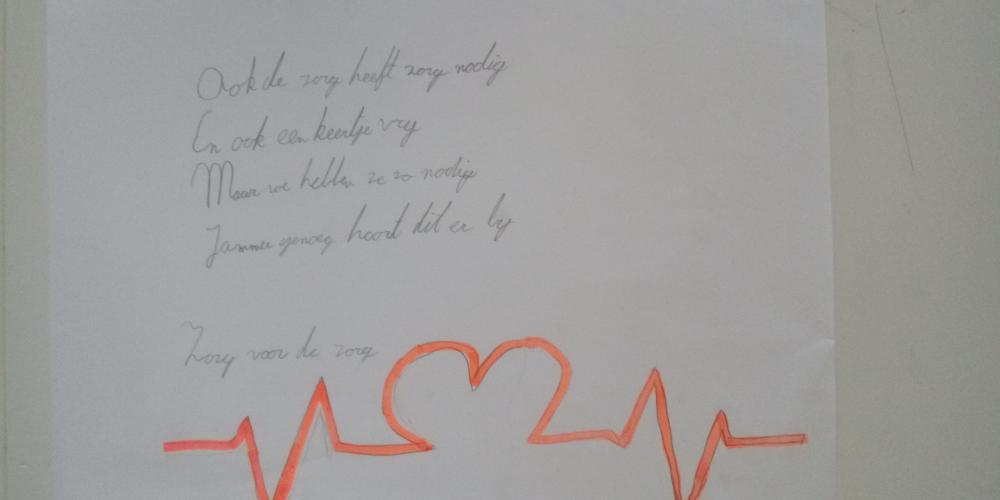 Ook de zorg heeft zorg nodig
En ook een keertje vrij
Maar we hebben ze zo nodig
Jammer genoeg hoort dit er bij
Zorg voor de zorg